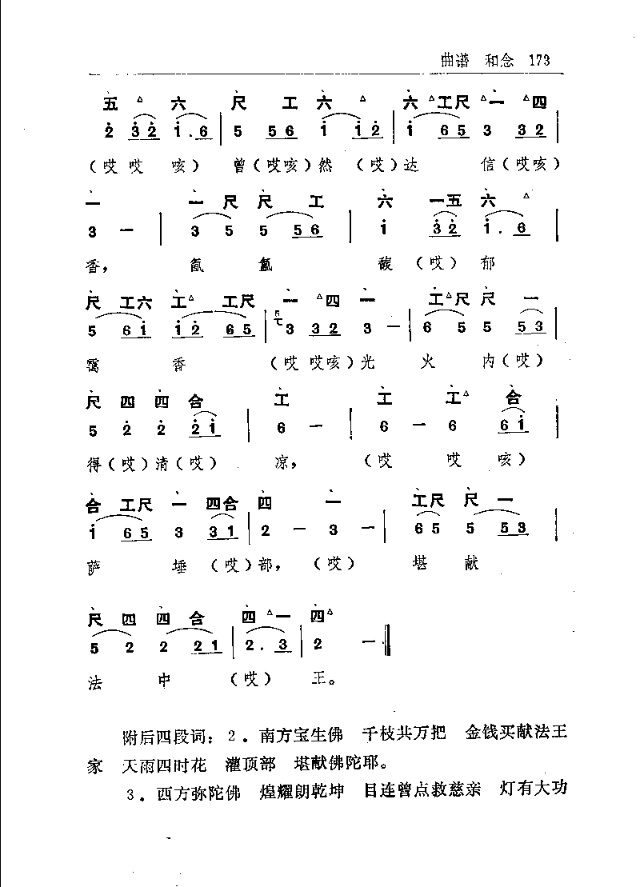 曲谱 和念 173
五 △ 六 尺 工 六 △ 六 △工尺 △一 △四
2 3 2 1. 6 | 5 5 6 1 1 2 | 1 6 5 3 3 2 |
（哎 哎 咳） 曾（哎咳）然 （哎）达 信（哎咳）
一 一 尺 尺 工 六 一五 六 △
3 － | 3 5 5 5 6 | 1 3 2 1 . 6 |
香， 氤 氲 馥（哎）郁
尺 工六 工△ 工尺 一 △四 一 工△尺 尺 一
5 6 1 1 2 6 5 | 3 3 2 3 － | 6 5 5 5 3 |
霭 香 （哎 哎咳）光 火 内（哎）
尺 四 四 合 工 工 工△ 合
5 2 2 2 1 | 6 － | 6 － 6 6 1 |
得（哎）清（哎） 凉， （哎 哎 咳）
合 工尺 一 四合 四 一 工尺 尺 一
1 6 5 3 3 1 | 2 － 3 － | 6 5 5 5 3 |
萨 埵 （哎）部，（哎） 堪 献
尺 四 四 合 四 △一 四△
5 2 2 2 1 | 2 . 3 | 2 － ‖
法 中 （哎） 王。
附后四段词：2．南方宝生佛 千枝共万把 金钱买献法王
家 天雨四时花 灌顶部 堪献佛陀耶。
3．西方弥陀佛 煌耀朗乾坤 目连曾点救慈亲 灯有大功